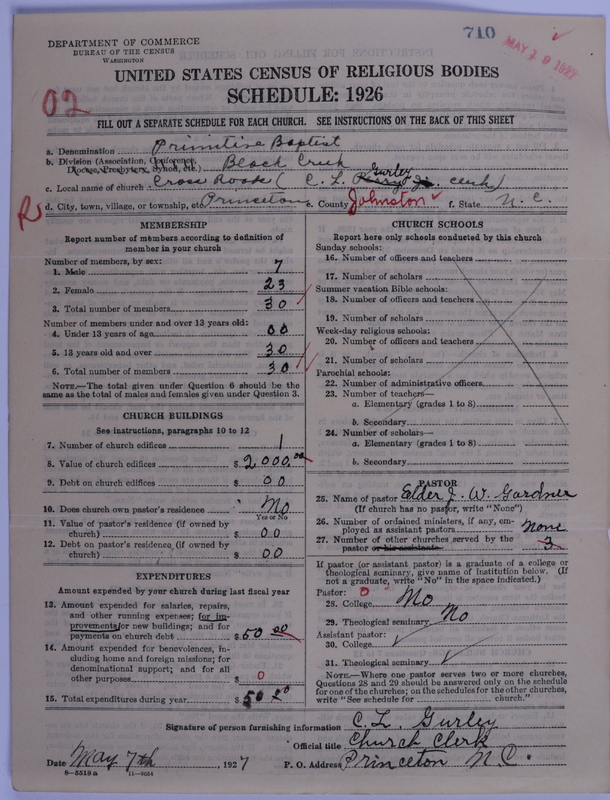 710
MAY 19 1927
DEPARTMENT OF COMMERCE
BUREAU OF THE CENSUS
WASHINGTON
UNITED STATES CENSUS OF RELIGIOUS BODIES
SCHEDULE: 1926
02
FILL OUT A SEPARATE SCHEDULE FOR EACH CHURCH. SEE INSTRUCTIONS ON THE BACK OF THIS SHEET
a. Denomination Primitive Baptist
b. Division (Association, Conference, Diocese, Presbytery, Synod, etc.) Black Creek
c. Local name of church Cross Roads ( C. L. Gurley clerk)
R
d. City, town, village, or township, etc. Princeton e. County Johnston f. State N. C.
MEMBERSHIP
Report number of members according to definition of
member in your church
Number of members, by sex:
1. Male 7
2. Female 23
3. Total number of members 30
Number of members under and over 13 years old:
4. Under 13 years of age 00
5. 13 years old and over 30
6. Total number of members 30
NOTE.—The total given under Question 6 should be the
same as the total of males and females given under Question 3.
CHURCH BUILDINGS
See instructions, paragraphs 10 to 12
7. Number of church edifices 1
8. Value of church edifices $2000.00
9. Debt on church edifices $ 00
10. Does church own pastor's residence No
Yes or No
11. Value of pastor's residence (if owned by
church) $ 00
12. Debt on pastor's residence (if owned by
church) $ 00
EXPENDITURES
Amount expended by your church during last fiscal year
13. Amount expended for salaries, repairs,
and other running expenses; for im-
provements or new buildings; and for
payments on church debt $50 00
14. Amount expended for benevolences, in-
cluding home and foreign missions; for
denominational support; and for all
other purposes $ 0
15. Total expenditures during year $50 00
CHURCH SCHOOLS
Report here only schools conducted by this church
Sunday schools:
16. Number of officers and teachers
17. Number of scholars
Summer vacation Bible schools:
18. Number of officers and teachers
19. Number of scholars
Week-day religious schools:
20. Number of officers and teachers
21. Number of scholars
Parochial schools:
22. Number of administrative officers
23. Number of teachers—
a. Elementary (grades 1 to 8)
b. Secondary
24. Number of scholars—
a. Elementary (grades 1 to 8)
b. Secondary
PASTOR
25. Name of pastor Elder J. W. Gardner
(If church has no pastor, write "None")
26. Number of ordained ministers, if any, em-
ployed as assistant pastors None
27. Number of other churches served by the
pastor or his assistants 3
If pastor (or assistant pastor) is a graduate of a college or
theological seminary, give name of institution below. (If
not a graduate, write "No" in the space indicated.)
Pastor: 0
28. College No
29. Theological seminary No
Assistant pastor:
30. College
31. Theological seminary
NOTE.—Where one pastor serves two or more churches,
Questions 28 and 29 should be answered only on the schedule
for one of the churches; on the schedules for the other churches,
write "See schedule for church."
Signature of person furnishing information C. L. Gurley
Official title Church Clerk
Date May 7th, 1927 P. O. Address Princeton N.C.
8-5518a 11-9654